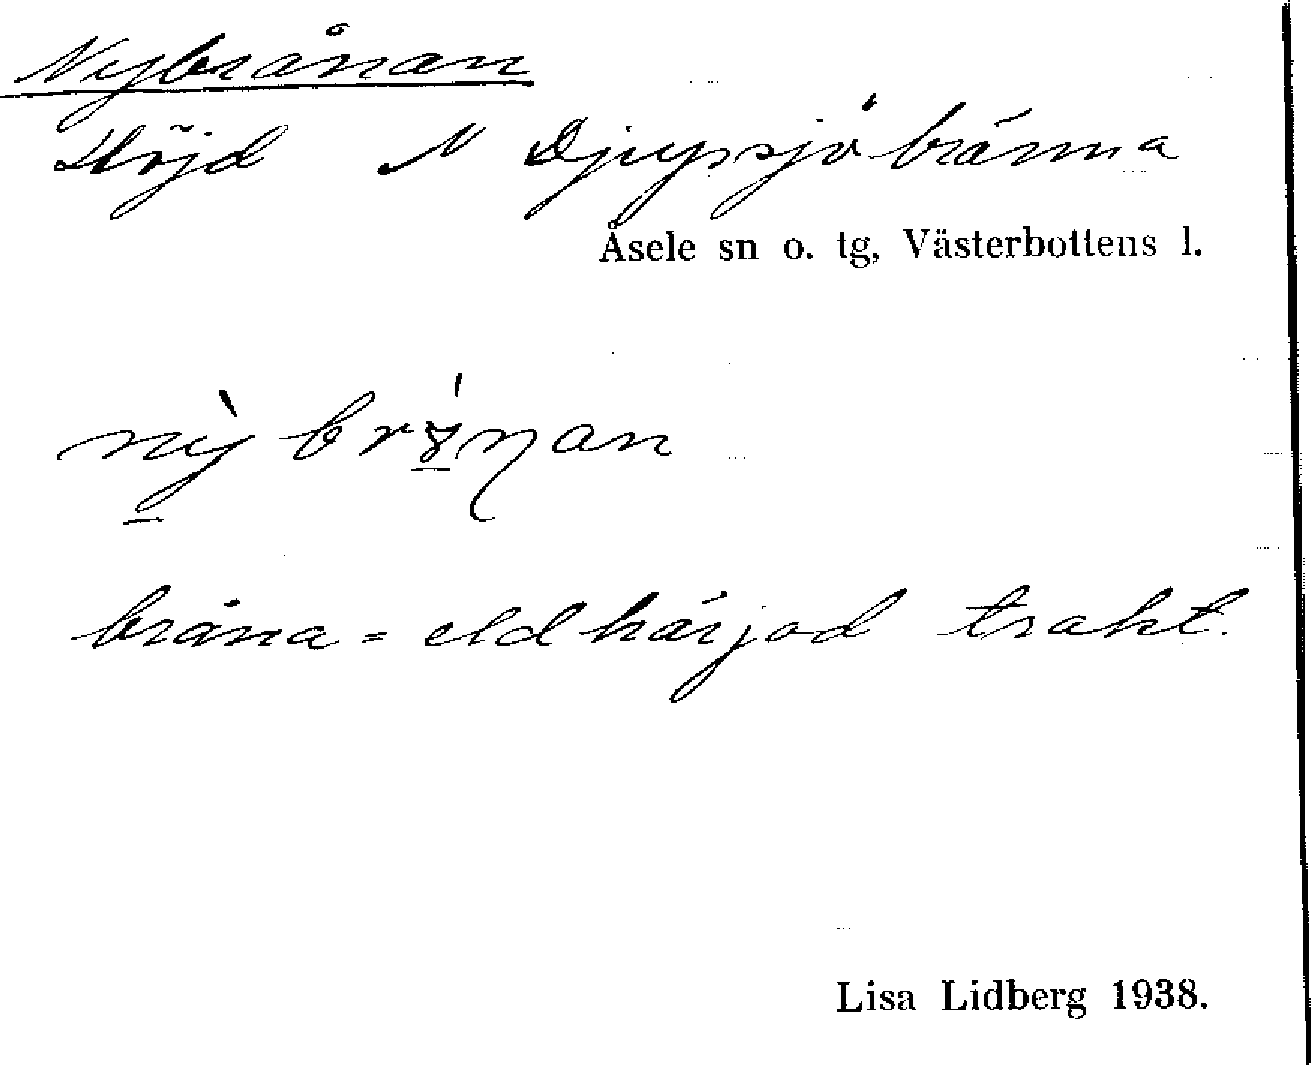 Nybrånan
Höjd N Djupsjöbränna
Åsele sn o. tg, Västerbottens l.
bråna = eldhärjad trakt.
Lisa Lidberg 1938.